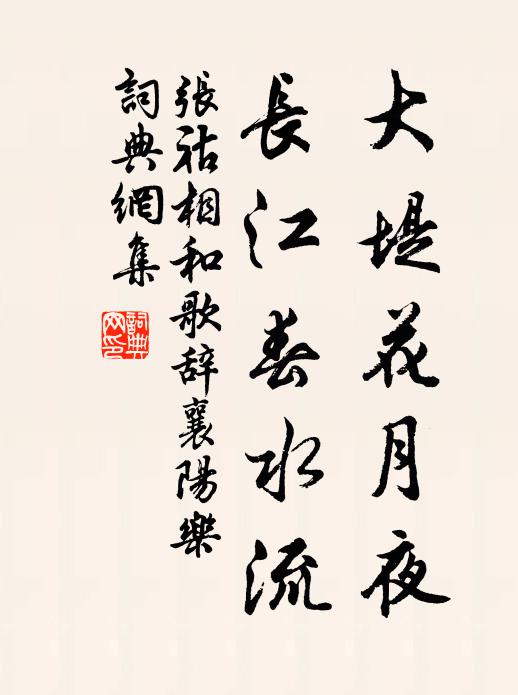 大堤花月夜
長江春水流
張祜相和歌辞襄陽樂
詞典網集
詞典
网印